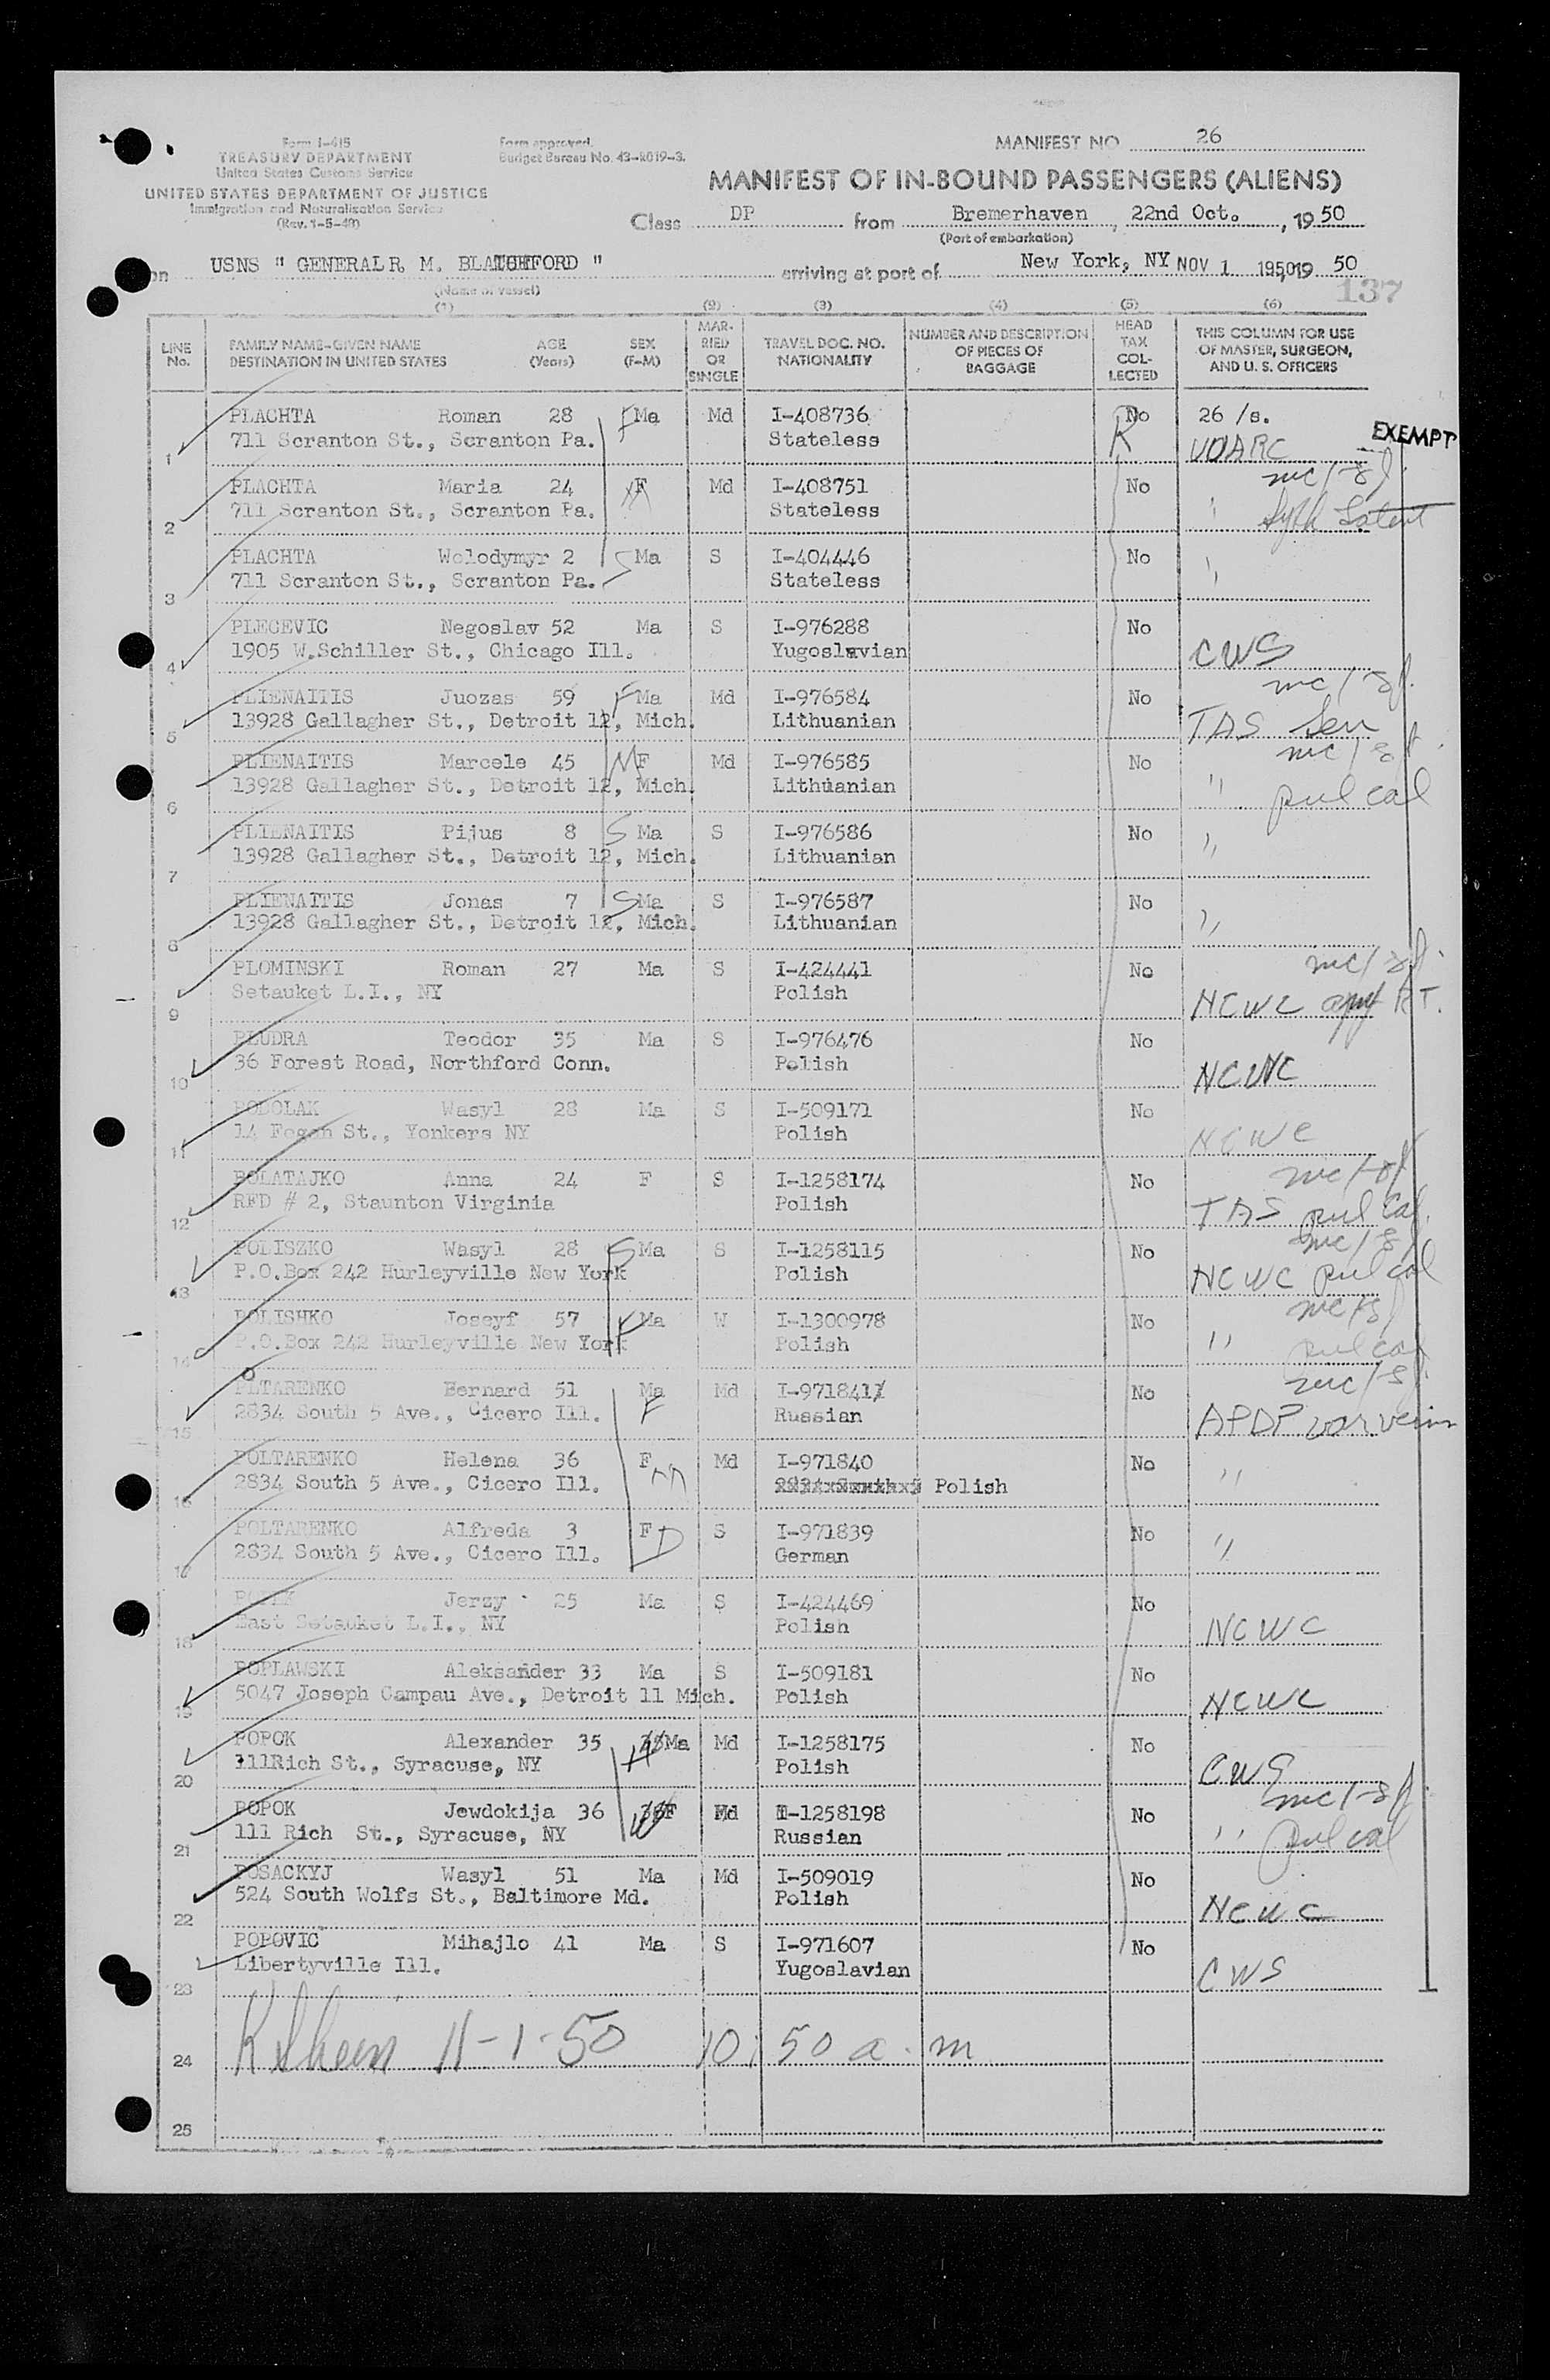 Form I-415
TREASURY DEPARTMENT
United States Customs Service
UNITED STATES DEPARTMENT OF JUSTICE
Immigration and Naturalization Service
(Rev. 1-5-49)
Form approved.
Budget Bureau No. 43-R019-3.
MANIFEST NO 26
MANIFEST OF IN-BOUND PASSENGERS (ALIENS)
Class DP from Bremerhaven, 22nd Oct., 19 50
(Port of embarkation)
on USNS " GENERAL R. M. BLATCHFORD " arriving at port of New York, NY NOV 1 1950 19 50
(Name of vessel)
137
(1) (2) (3) (4) (5) (6)
LINE No. FAMILY NAME-GIVEN NAME DESTINATION IN UNITED STATES AGE (Years) SEX (F-M) MARRIED OR SINGLE TRAVEL DOC. NO. NATIONALITY NUMBER AND DESCRIPTION OF PIECES OF BAGGAGE HEAD TAX COLLECTED THIS COLUMN FOR USE OF MASTER, SURGEON, AND U. S. OFFICERS
PLACHTA Roman 28 F Ma Md I-408736 No 26 /s. EXEMPT
1 711 Scranton St., Scranton Pa. Stateless R VOARC
PLACHTA Maria 24 F Md I-408751 No mc/sf.
2 711 Scranton St., Scranton Pa. Stateless " Syph Latent
PLACHTA Wolodymyr 2 S Ma S I-404446 No
3 711 Scranton St., Scranton Pa. Stateless "
PLECEVIC Negoslav 52 Ma S I-976288 No
4 1905 W.Schiller St., Chicago Ill. Yugoslavian CWS
PLIENAITIS Juozas 59 F Ma Md I-976584 No mc/sf.
5 13928 Gallagher St., Detroit 12, Mich. Lithuanian TAS Sen
PLIENAITIS Marcele 45 M F Md I-976585 No mc/sf.
6 13928 Gallagher St., Detroit 12, Mich. Lithuanian " pul cal
PLIENAITIS Pijus 8 S Ma S I-976586 No
7 13928 Gallagher St., Detroit 12, Mich. Lithuanian "
PLIENAITIS Jonas 7 S Ma S I-976587 No
8 13928 Gallagher St., Detroit 12, Mich. Lithuanian "
PLOMINSKI Roman 27 Ma S I-424441 No mc/sf.
9 Setauket L.I., NY Polish NCWC RT.
PLUDRA Teodor 35 Ma S I-976476 No
10 36 Forest Road, Northford Conn. Polish NCWC
PODOLAK Wasyl 28 Ma S I-509171 No
11 14 Fegan St., Yonkers NY Polish NCWC
POLATAJKO Anna 24 F S I-1258174 No mc/sf
12 RFD # 2, Staunton Virginia Polish TAS pul Cal.
POLISZKO Wasyl 28 S Ma S I-1258115 No mc/sf
13 P.O.Box 242 Hurleyville New York Polish NCWC pul cal
POLISHKO Joseyf 57 F Ma W I-1300978 No mc/sf
14 P.O.Box 242 Hurleyville New York Polish " pul cal
POLTARENKO Bernard 51 Ma Md I-971841 No mc/sf.
15 2834 South 5 Ave., Cicero Ill. F Russian APDP var veins
POLTARENKO Helena 36 F Md I-971840 No
16 2834 South 5 Ave., Cicero Ill. M Polish "
POLTARENKO Alfreda 3 F D S I-971839 No
17 2834 South 5 Ave., Cicero Ill. German "
Jerzy 25 Ma S I-424469 No
18 East Setauket L.I., NY Polish NCWC
POPLAWSKI Aleksander 33 Ma S I-509181 No
19 5047 Joseph Campau Ave., Detroit 11 Mich. Polish NCWC
POPOK Alexander 35 Ma Md I-1258175 No
20 111Rich St., Syracuse, NY H Polish CWS
POPOK Jewdokija 36 F Md I-1258198 No mc/sf.
21 111 Rich St., Syracuse, NY W Russian " pul cal
POSACKYJ Wasyl 51 Ma Md I-509019 No
22 524 South Wolfs St., Baltimore Md. Polish NCWC
POPOVIC Mihajlo 41 Ma S I-971607 No
23 Libertyville Ill. Yugoslavian CWS
24 11-1-50 10:50 a.m
25